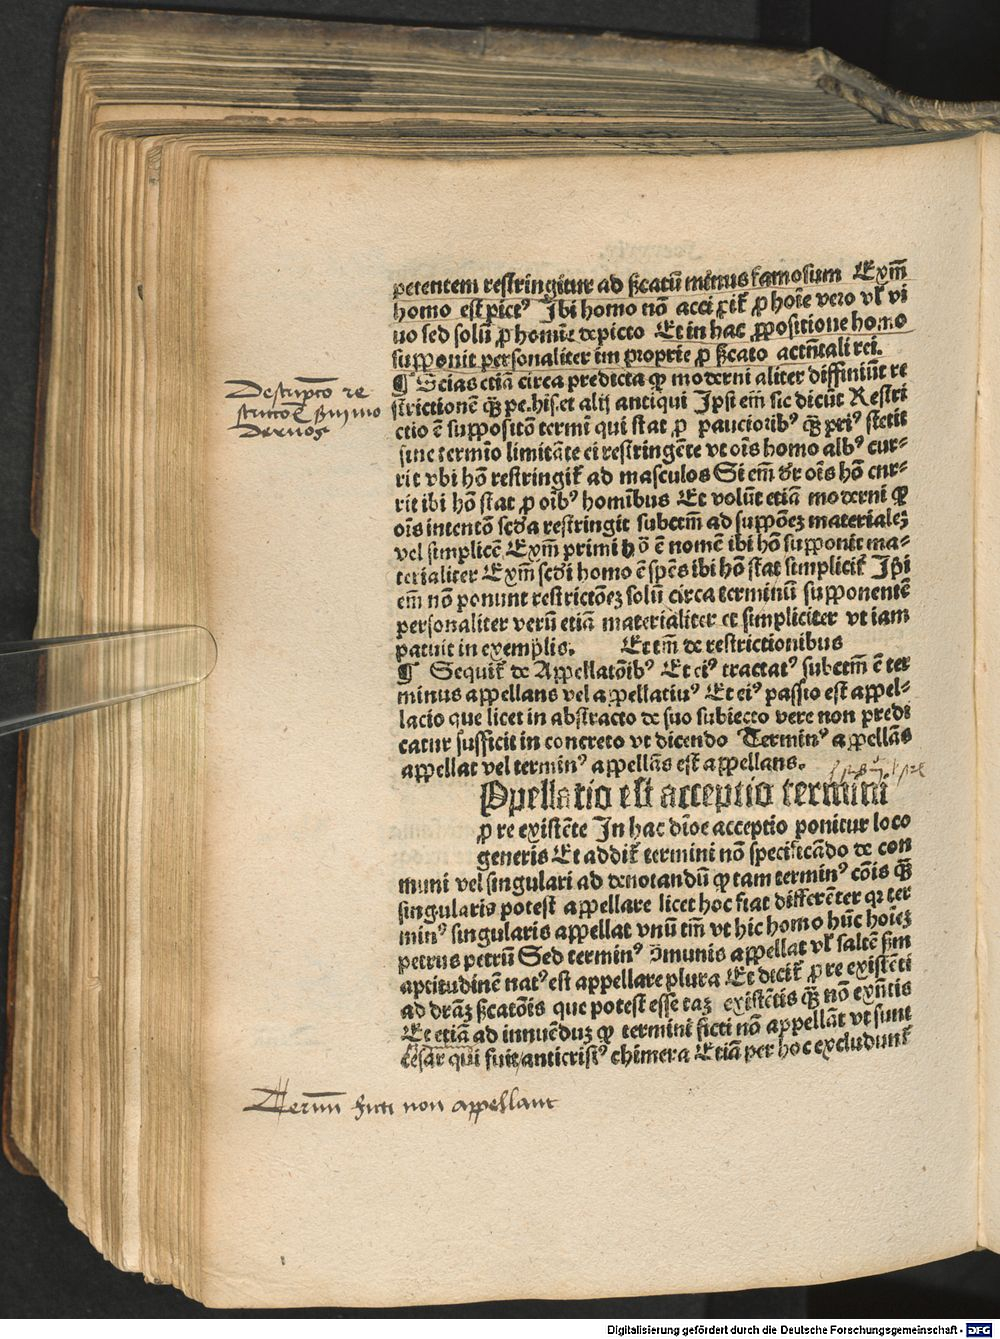 petentem restringitur ad ſẜcatū minus famosum Exm̄
homo est pictꝰ Ibi homo nō accipit̄ ꝓ hoīe vero vl̄ vi
uo sed solū ꝓ homīe depicto Et in hac ꝓpositione homo
supponit personaliter im proprie ꝓ ſẜcato actn̄tali rei.
¶ Scias etiā circa predicta ꝙ moderni aliter diffiniūt re
strictionē qȝ̄ pe.his.et alij antiqui Ipsi em̄ sic dicūt Restri
ctio ē suppositō termi qui stat ꝓ paucioribꝰ qȝ̄ priꝰ stetit
sine termio limitāte ei restringēte vt oīs homo albꝰ cur-
rit vbi hō restringit̄ ad masculos Si em̄ dr̄ oīs hō cur-
rit ibi hō stat ꝓ oibꝰ homībus Et volūt etiā moderni ꝙ
oīs intentō scd̄a restringit subctm̄ ad suppōeȝ materialeȝ
vel simplicē Exm̄ primi hō ē nomē ibi hō supponit ma-
terialiter Exm̄ scd̄i homo ē spēs ibi hō stat simplicit̄ Ip̄i
em̄ nō ponunt restrictōeȝ solū circa terminū supponentē
personaliter verū etiā materialiter et simpliciter vt iam
patuit in exemplis. Et tm̄ de restrictionibus
¶ Sequit̄ de Appellatōibꝰ Et eiꝰ tractatꝰ subctm̄ ē ter
minus appellans vel appellatiuꝰ Et eiꝰ passio est appel-
lacio que licet in abstracto de suo subiecto vere non predi
catur sufficit in concreto vt dicendo Terminꝰ appellās
appellat vel terminꝰ appellās est appellans.
Ppellatio est acceptio termini
ꝓ re existēte In hac dīoe acceptio ponitur loco
generis Et addit̄ termini nō specificādo de com
muni vel singulari ad denotandū ꝙ tam terminꝰ cōis qȝ̄
singularis potest appellare licet hoc fiat differēter qꝛ ter
minꝰ singularis appellat vnū tm̄ vt hic homo hūc hoīeȝ
petrus petrū Sed terminꝰ ꝯmunis appellat vl̄ saltē ẜm
aptitudinē natꝰ est appellare plura Et dicit̄ ꝓ re existēti
ad drāȝ ſẜcatōis que potest esse taȝ existētis qȝ̄ nō exn̄tis
Et etiā ad innuēduȝ ꝙ termini ficti nō appellāt vt sunt
cesar qui fuit anticristꝰ chimera Etiā per hoc excludunt̄
Descriptō re
strictōis ẜm mo
dernos
Termini ficti non appellant